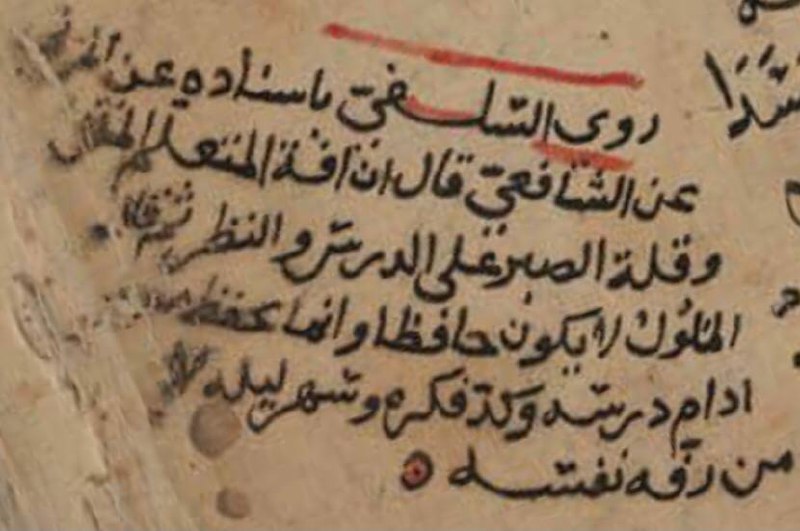 روى السلفي باسناده عن
عن الشافعي قال ان افة المتعلم الملل
وقلة الصبر على الدرس والنظر ثم قال
الملول لا يكون حافظا وانما يحفظ من
ادام درسه وكد فكره وسهر ليله لا
من رفه نفسه